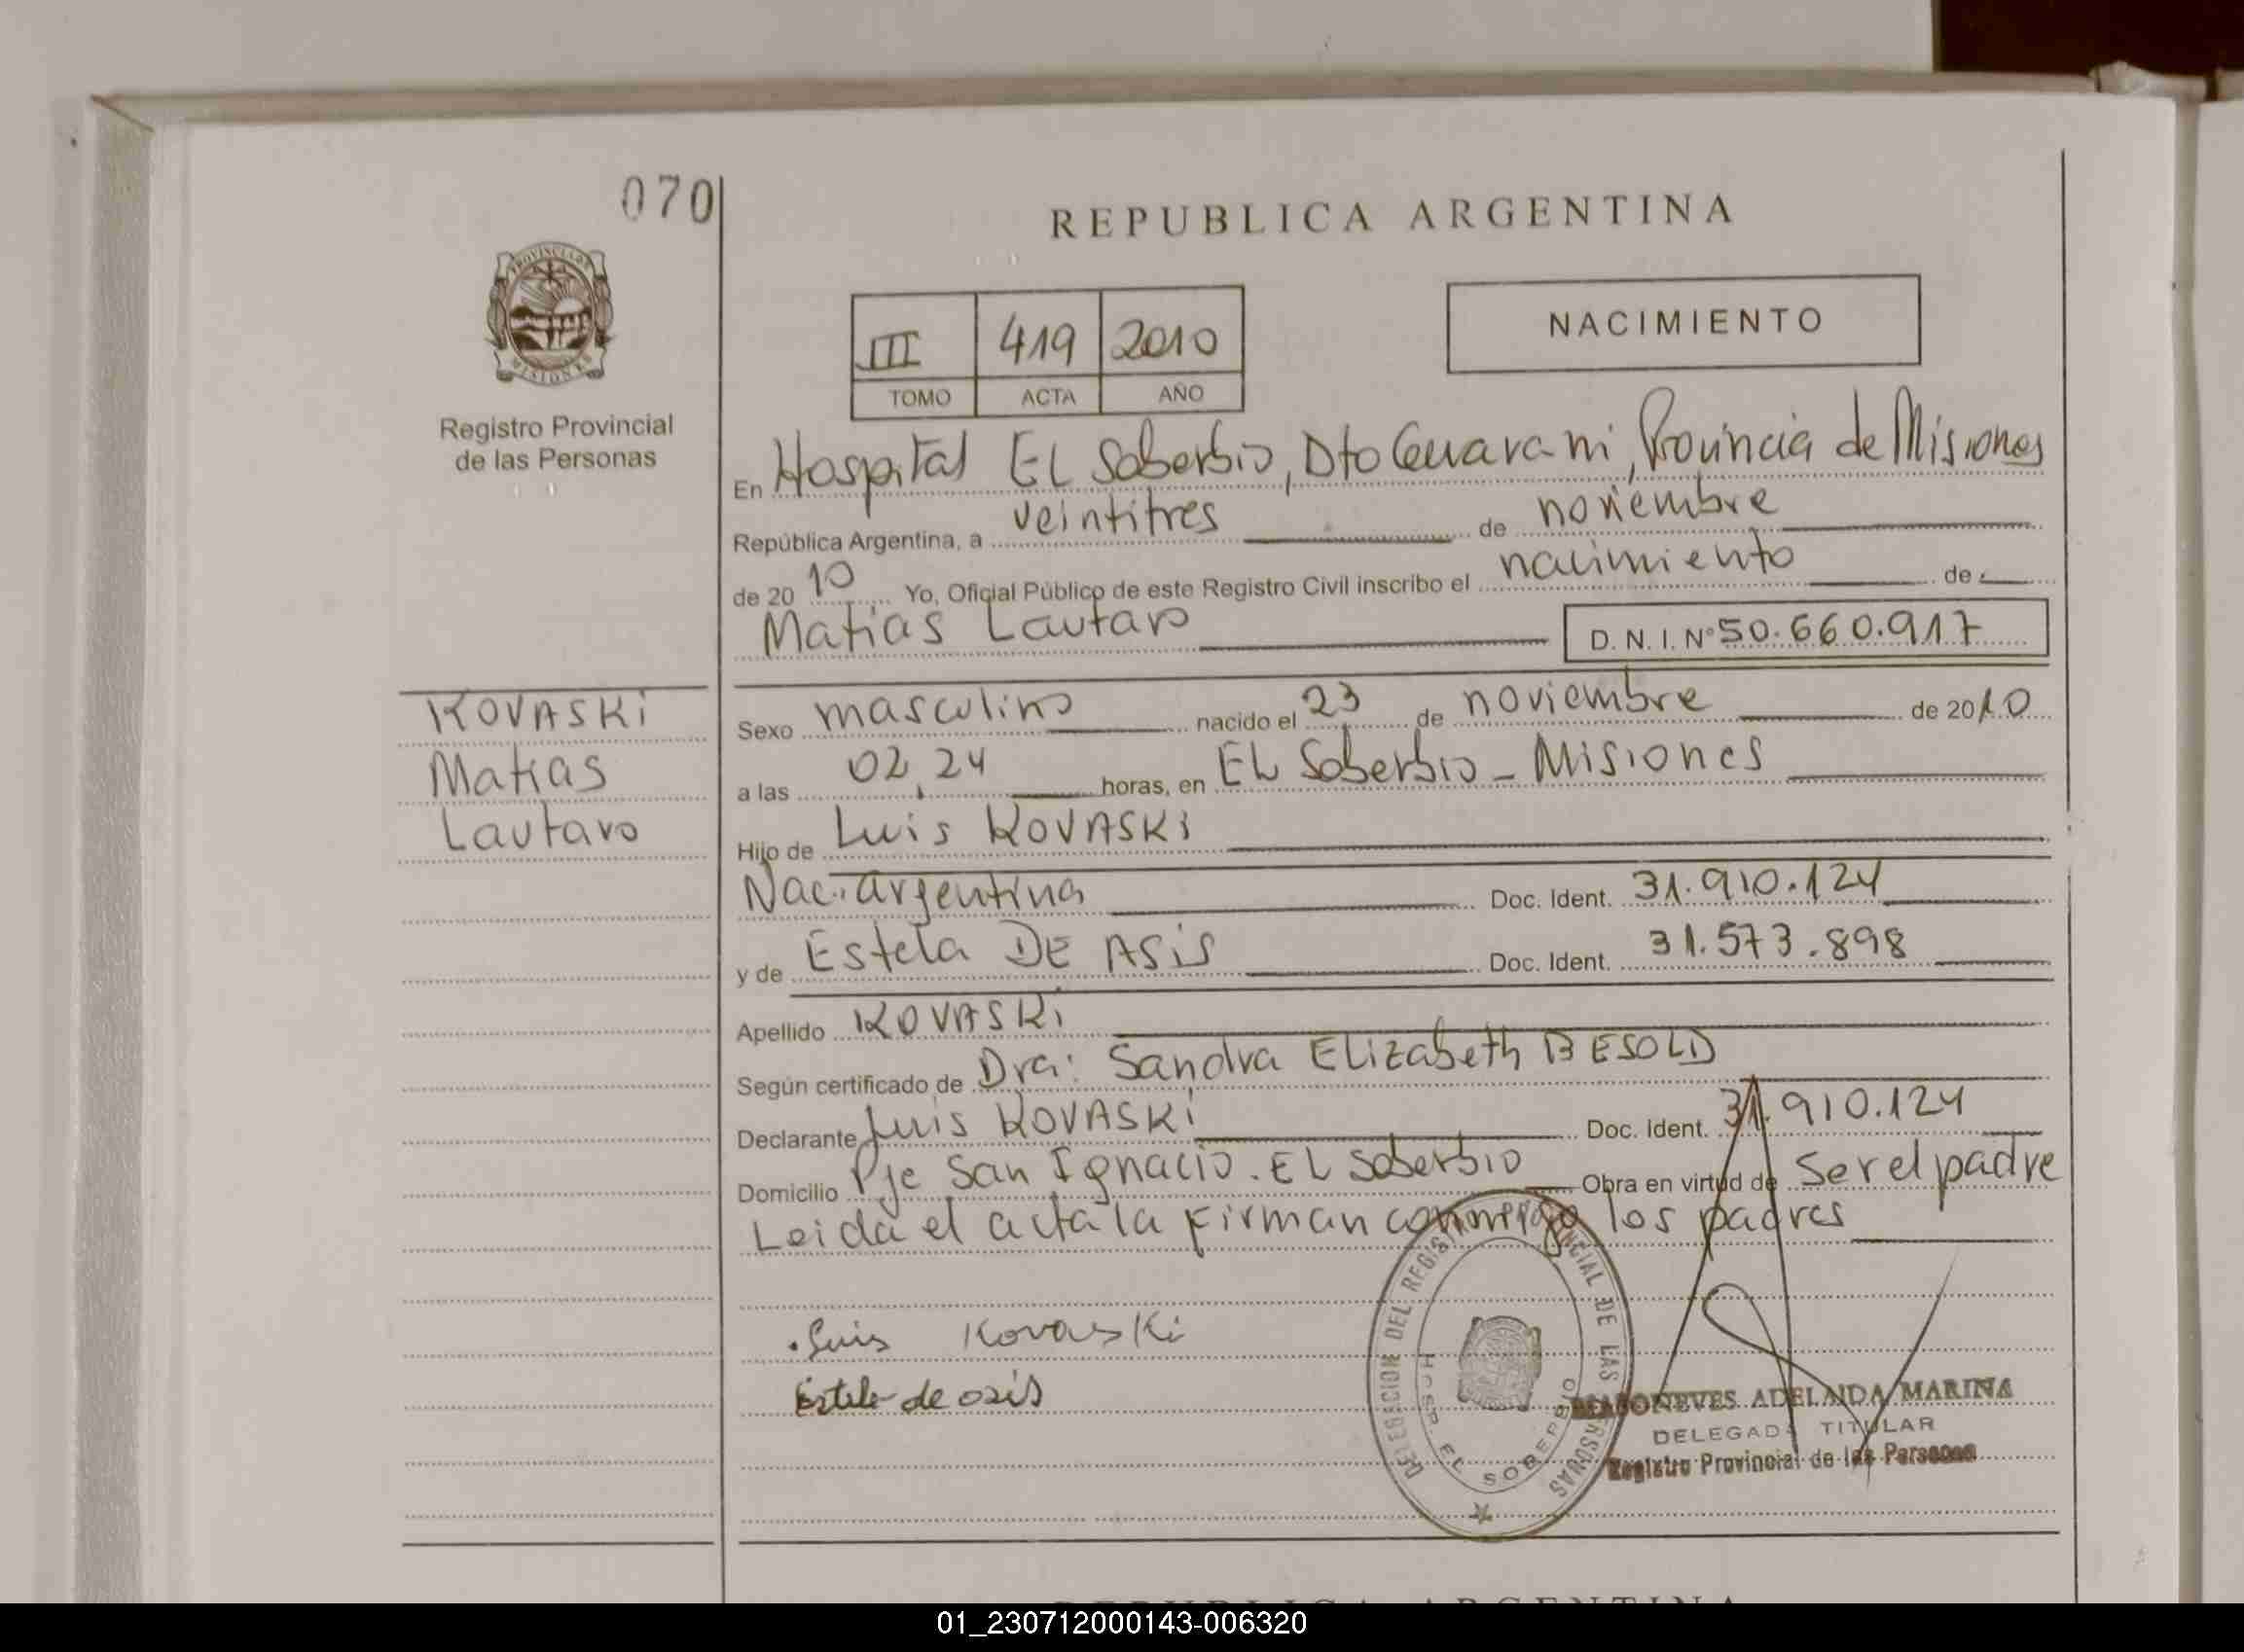 070
REPUBLICA ARGENTINA
PROVINCIA DE
MISIONES
III 419 2010
TOMO ACTA AÑO
NACIMIENTO
Registro Provincial
de las Personas
En Hospital EL Soberbio, Dto Guarani, Provincia de Misiones
República Argentina, a veintitres de noviembre
de 2010 Yo, Oficial Público de este Registro Civil inscribo el nacimiento de
Matias Lautaro D. N. I. Nº 50.660.917
KOVASKi
Matias
Lautaro
Sexo masculino nacido el 23 de noviembre de 2010
a las 02,24 horas, en EL Soberbio - Misiones
Hijo de Luis KOVASKi
Nac. argentina Doc. Ident. 31.910.124
y de Estela DE ASiS Doc. Ident. 31.573.898
Apellido KOVASKi
Según certificado de Dra: Sandra Elizabeth BESOLD
Declarante Luis KOVASKi Doc. Ident. 31.910.124
Domicilio Pje San Ignacio. EL Soberbio Obra en virtud de Ser el padre
Leida el acta la firman conmigo los padres
Luis Kovaski
Estela de asis
DELEGACION DEL REGISTRO PROVINCIAL DE LAS PERSONAS
HOSP. EL SOBERBIO
ADELAIDA MARINA
DELEGADA TITULAR
Registro Provincial de las Personas
REPUBLICA ARGENTINA
01_230712000143-006320